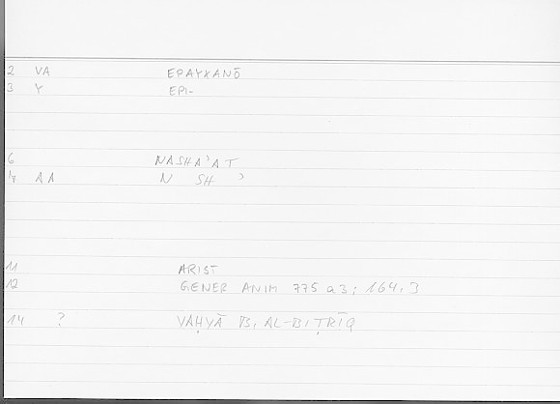 2 VA EPAYXANŌ
3 Y EPI-
6 NASHA'AT
7 AA N SH '
11 ARIST
12 GENER ANIM 775 a3; 164,3
14 ? YAḤYĀ B, AL-BIṬRĪQ